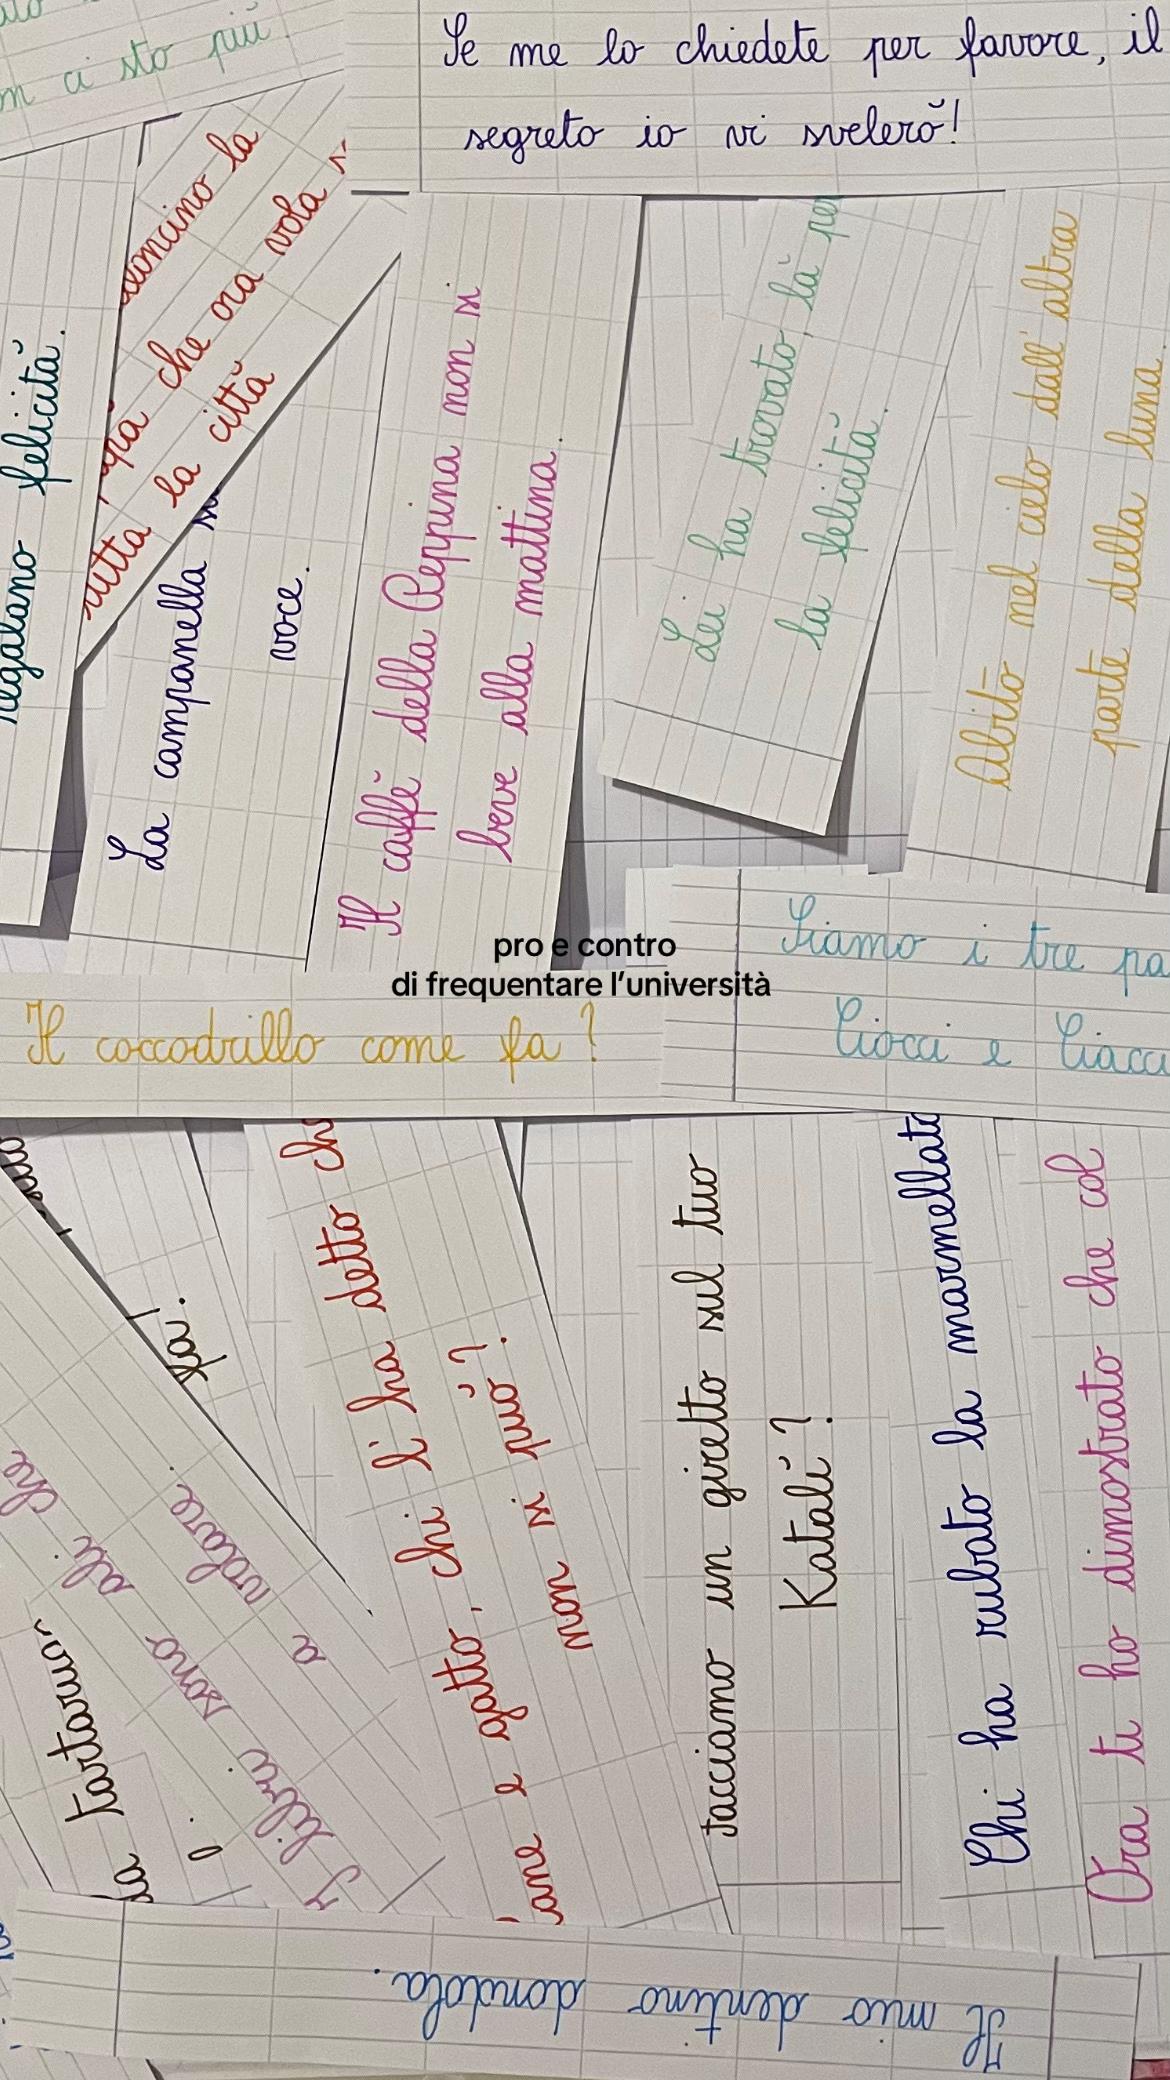 n ci sto più.
Se me lo chiedete per favore, il
segreto io vi svelerò!
la
che ora vola
tutta la città
regalano felicità.
La campanella
voce.
Il caffè della Peppina non si
beve alla mattina.
Lei ha trovato, là per
la felicità.
Abitò nel cielo dall'altra
parte della luna.
pro e contro
di frequentare l'università
Siamo i tre pa
Ciocci e Ciacci
Il coccodrillo come fa?
fai!
tartaru
I libri sono ali che
a volare.
cane e gatto, chi l'ha detto che
non si può?
Facciamo un giretto sul tuo
Katalì?
Chi ha rubato la marmellata
Ora ti ho dimostrato che col
Il mio dentino dondola.